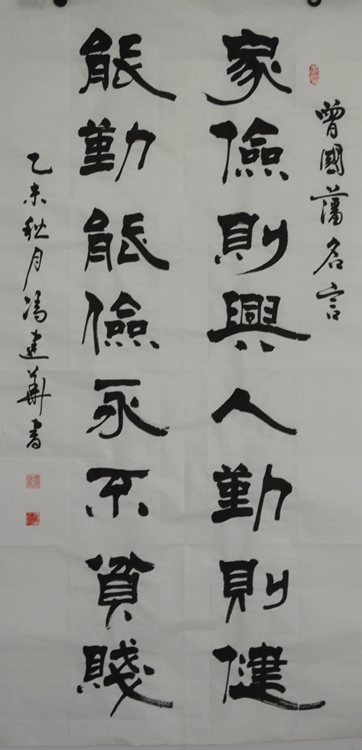 曾國藩名言
家儉則興人勤則健
能勤能儉永不貧賤
乙未秋月冯建華書